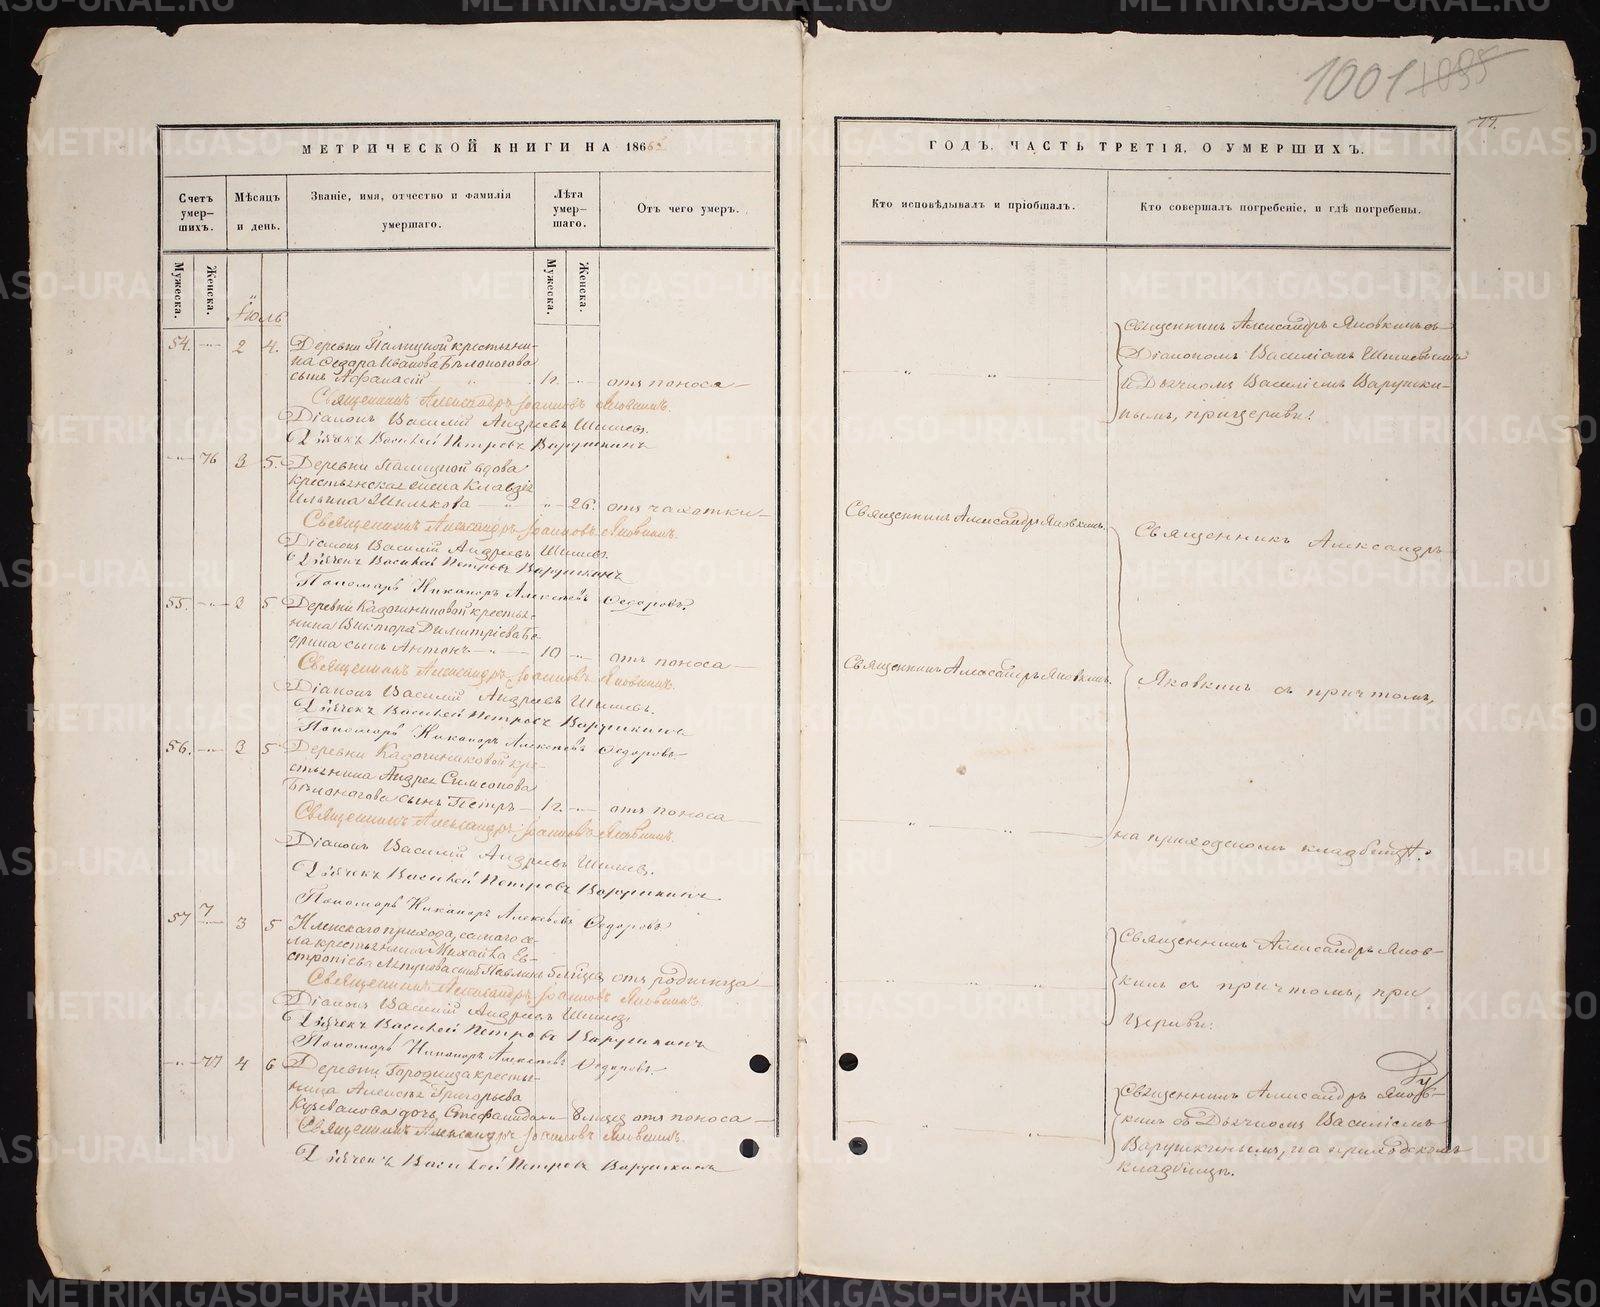 1001 1035
77.
МЕТРИЧЕСКОЙ КНИГИ НА 1865
ГОДЪ, ЧАСТЬ ТРЕТІЯ, О УМЕРШИХЪ.
Счетъ умер-шихъ.
Мѣсяцъ и день.
Званіе, имя, отчество и фамилія умершаго.
Лѣта умер-шаго.
Отъ чего умеръ.
Кто исповѣдывалъ и пріобщалъ.
Кто совершалъ погребеніе, и гдѣ погребены.
Мужеска.
Женска.
Мужеска.
Женска.
Іюль
54. 2 4. Деревни Палицной крестьяни-
на Ѳедора Иванова Бѣлоногова
сынъ Афанасій 1 г. отъ поноса
Священникъ Александръ Іоанновъ Яковкинъ.
Діаконъ Василій Андреевъ Шишев.
Дьячекъ Василей Петровъ Варушкинъ
Священникъ Александръ Яковкинъ съ
Діакономъ Василіемъ Шишевымъ
и Дьячкомъ Василіемъ Варушки-
нымъ, при церкви.
76 3 5. Деревни Палицной вдова
крестьянская жена Клавдія
Ильина Шилкова 26. отъ чахотки
Священникъ Александръ Іоанновъ Яковкинъ.
Діаконъ Василій Андреевъ Шишев.
Дьячекъ Василей Петровъ Варушкинъ
Пономарь Никаноръ Алексѣевъ Ѳедоровъ.
Священникъ Александръ Яковкинъ.
Священникъ Александръ
55. 3 5 Деревни крестья-
нина Виктора Димитріева Бе-
сынъ Антонъ 10 отъ поноса
Священникъ Александръ Іоанновъ Яковкинъ.
Діаконъ Василій Андреевъ Шишев.
Дьячекъ Василей Петровъ Варушкинъ
Пономарь Никаноръ Алексѣевъ Ѳедоровъ
Священникъ Александръ Яковкинъ.
Яковкинъ съ причтомъ,
56. 3 5 Деревни кре-
стьянина Андрея Симеонова
Бѣлоногова сынъ Петръ 1 г. отъ поноса
Священникъ Александръ Іоанновъ Яковкинъ.
Діаконъ Василій Андреевъ Шишев.
Дьячекъ Василей Петровъ Варушкинъ
Пономарь Никаноръ Алексѣевъ Ѳедоровъ
на приходскомъ кладбищѣ.
57 7 3 5 прихода, самого се-
ла крестьянина Михайла Ев-
стропіева сынъ Павлинъ отъ родимца
Священникъ Александръ Іоанновъ Яковкинъ.
Діаконъ Василій Андреевъ Шишев.
Дьячекъ Василей Петровъ Варушкинъ
Пономарь Никаноръ Алексѣевъ Ѳедоровъ.
Священникъ Александръ Яков-
кинъ съ причтомъ, при
церкви.
77 4 6 Деревни Городища кресть-
нина Алексѣя Григорьева
дочь Стефанида 8 отъ поноса
Священникъ Александръ Іоанновъ Яковкинъ.
Дьячекъ Василей Петровъ Варушкинъ
Священникъ Александръ Яков-
кинъ съ Дьячкомъ Василіемъ
Варушкинымъ, на приходскомъ
кладбищѣ.
METRIKI.GASO-URAL.RU